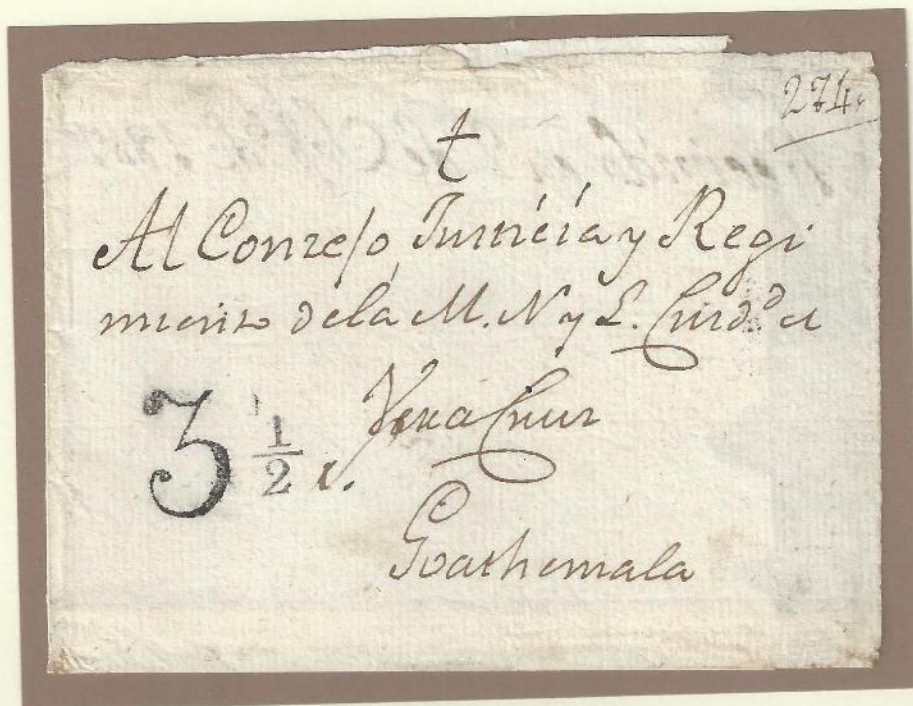 274.
†
Al Conzejo Justicia y Regi
miento dela M. N y L. Ciud.d de
Vera Cruz
3 1/2 r.
Goathemala